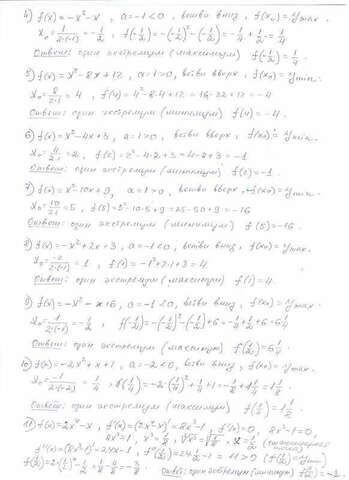 4) f(x) = -x² - x, a = -1 < 0, ветви вниз, f(x₀) = y max.
x₀ = 1/(2·(-1)) = -1/2, f(-1/2) = -(-1/2)² - (-1/2) = -1/4 + 1/2 = 1/4.
Ответ: один экстремум (максимум) f(-1/2) = 1/4.
5) f(x) = x² - 8x + 12, a = 1 > 0, ветви вверх, f(x₀) = y min.
x₀ = 8/(2·1) = 4, f(4) = 4² - 8·4 + 12 = 16 - 32 + 12 = -4
Ответ: один экстремум (минимум) f(4) = -4.
6) f(x) = x² - 4x + 3, a = 1 > 0, ветви вверх, f(x₀) = y min.
x₀ = 4/(2·1) = 2, f(2) = 2² - 4·2 + 3 = 4 - 8 + 3 = -1.
Ответ: один экстремум (минимум) f(2) = -1.
7) f(x) = x² - 10x + 9, a = 1 > 0, ветви вверх, f(x₀) = y min.
x₀ = 10/(2·1) = 5, f(5) = 5² - 10·5 + 9 = 25 - 50 + 9 = -16
Ответ: один экстремум (минимум) f(5) = -16.
8) f(x) = -x² + 2x + 3, a = -1 < 0, ветви вниз, f(x₀) = y max.
x₀ = -2/(2·(-1)) = 1, f(1) = -1² + 2·1 + 3 = 4
Ответ: один экстремум (максимум) f(1) = 4.
9) f(x) = -x² - x + 6, a = -1 < 0, ветви вниз, f(x₀) = y max.
x₀ = 1/(2·(-1)) = -1/2, f(-1/2) = -(-1/2)² - (-1/2) + 6 = -1/4 + 1/2 + 6 = 6 1/4
Ответ: один экстремум (максимум) f(-1/2) = 6 1/4.
10) f(x) = -2x² + x + 1, a = -2 < 0, ветви вниз, f(x₀) = y max.
x₀ = -1/(2·(-2)) = 1/4, f(1/4) = -2·(1/4)² + 1/4 + 1 = -1/8 + 1/4 + 1 = 1 1/8
Ответ: один экстремум (максимум) f(1/4) = 1 1/8.
11) f(x) = 2x⁴ - x, f'(x) = (2x⁴ - x)' = 8x³ - 1, f'(x) = 0, 8x³ - 1 = 0,
8x³ = 1, x³ = 1/8, x = 1/2
f''(x) = (8x³ - 1)' = 24x
f(1/2) = 2·(1/2)⁴ - 1/2 = 1/8 - 1/2 = -3/8
Ответ: один экстремум (минимум)